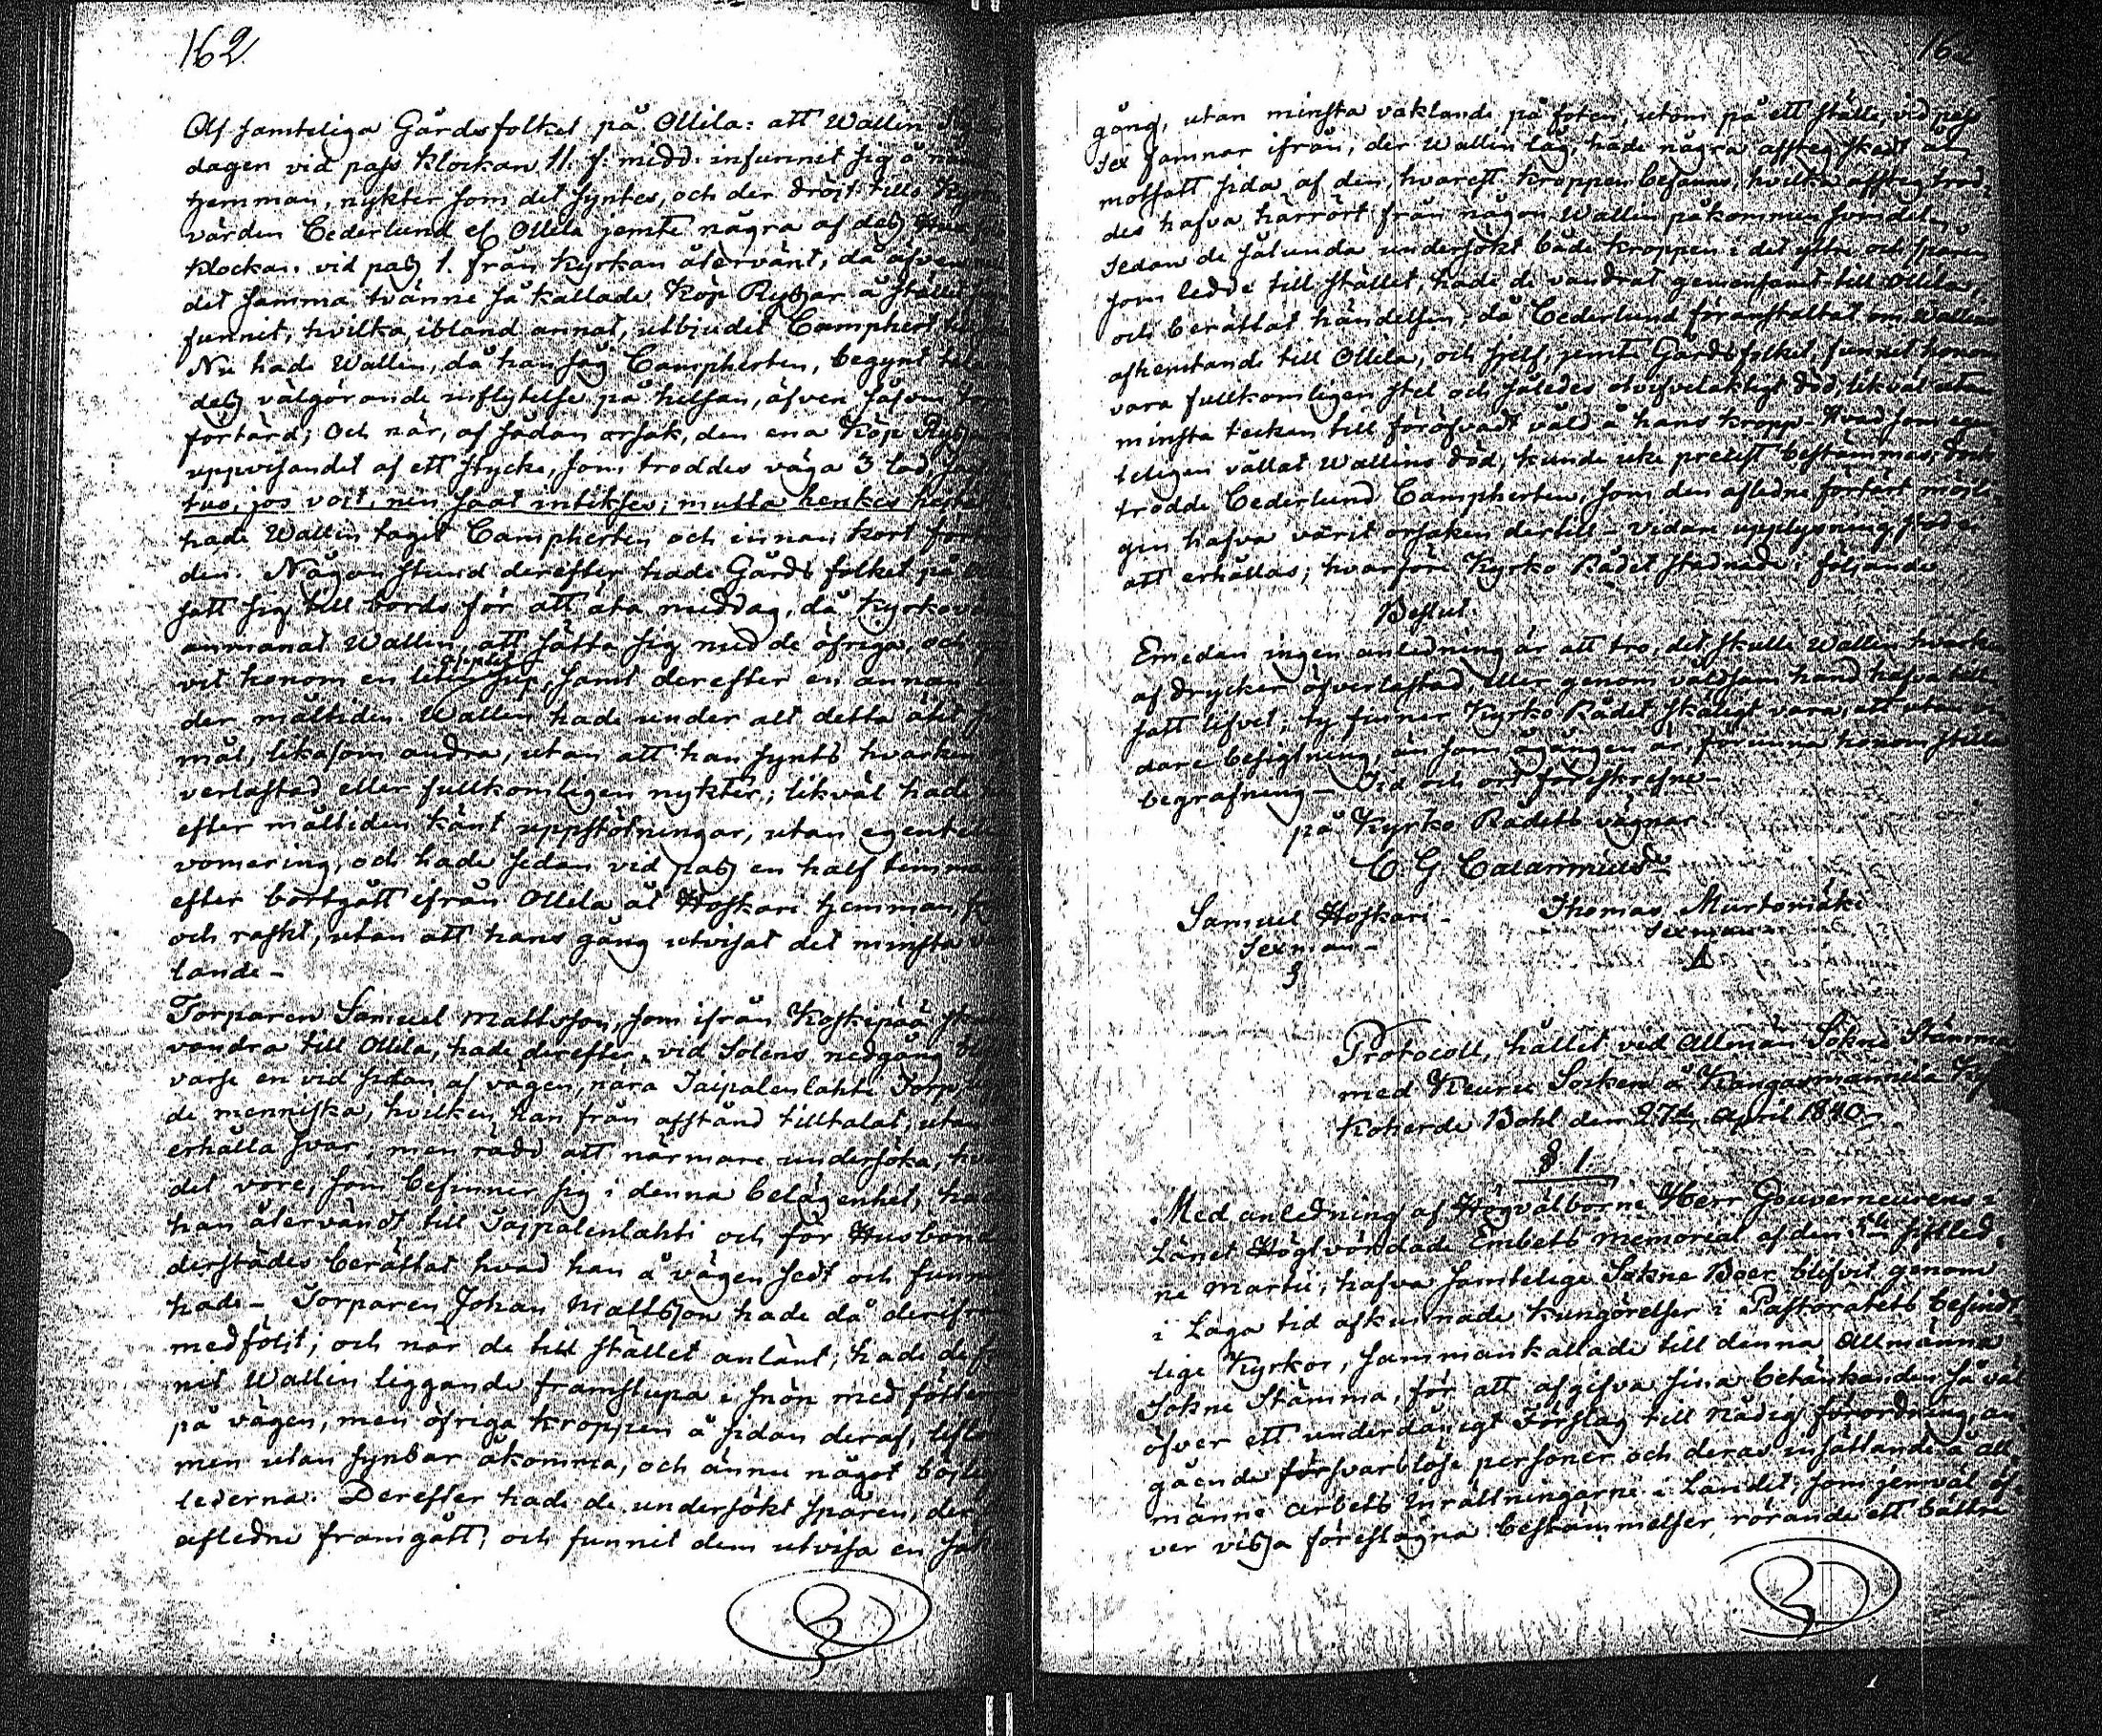 162
Af samteliga Gårdsfolket på Ollila: att Wallin
dagen vid pass Klockan 11. f. midd. infunnit sig å
hemman, nykter som det syntes, och der dröjt tills Kyrko
värden Cederlund ef Ollila jemte några af dess
klockan vid pass 1. från Kyrkan återvänt, då äfven
det samma tvänne så kallade Köp Ryssar å stället
funnit, hvilka, ibland annat, utbjudet Camphert
Nu hade Wallin, då han såg Campherten, begynt
dess välgörande inflytelse på helsan, äfven såsom
förtärd; Och när, af sådan orsak, den ena Köp Ryssen
uppvisandet af ett stycke, som troddes väga 3 lod,
tuo, jos voit, nin saat intikses; mutta henkes
hade Wallin tagit Campherten och innan kort
den. Någon stund derefter hade Gårds folket på
satt sig till bords för att äta middag, då Kyrkovär
anmanat Wallin, att sätta sig med de öfriga, och
vit honom en liten sup, samt derefter en annan
der måltiden. Wallin hade under alt detta ätit
mål, likasom andra, utan att han synts hvarken
verlastad eller fullkomligen nykter; likväl hade
efter måltiden känt uppstötningar, utan egentelig
vomering, och hade sedan vid pass en half timma
efter bortgått ifrån Ollila åt Hoskari hemman,
och raskt, utan att hans gång utvisat det minsta
lande -
Torparen Samuel Mattsson, som ifrån Koskipää
vandra till Ollila, hade derefter vid Solens nedgång
varse en vid sidan af vägen, nära Taipalenlahti Torp,
de menniska, hvilken han från afstånd tilltalat, utan
erhålla svar, men rädd att närmare undersöka,
det vore, som befinner sig i denna belägenhet,
han återvändt till Taipalenlahti och för Husbond
derstädes berättat hvad han å vägen sedt och funnit
hade - Torparen Johan Mattsson hade då derifrån
medföljt; och när de till stället anlänt, hade de
nit Wallin liggande framstupa i snön med fötter
på vägen, men öfriga kroppen å sidan deraf, liflös
men utan synbar åkomma, och ännu något böjlig
lederna. Derefter hade de undersökt spåren, der
afledne framgått, och funnit dem utvisa en
162
gång, utan minsta vaklande på foten, utom på ett ställe, vid pass
sex famnar ifrån, der Wallin låg, hade några afsteg skedt åt
motsatt sida af den, hvarest kroppen befanns, hvilka afsteg trod-
des hafva härrört från någon Wallin påkommen svindel.
Sedan de sålunda undersökt både kroppen i det yttre och spåren
som ledde till stället, hade de vandrat gemensamt till Ollila,
och berättat händelsen, då Cederlund föranstaltat om Wallins
afhemtande till Ollila, och sjelf jemte Gårdsfolket, funnet honom
vara fullkomligen stel och således otvifvelaktigt död, likväl utan
minsta tecken till föröfvadt våld å hans kropp - Hvad som egen
teligen vållat Wallins död, kunde icke precist bestämmas, dock
trodde Cederlund Campherten, som den afledne förtärt möjli-
gen hafva varit orsaken dertill - Vidare upplysning stod ej
att erhållas; hvarföre Kyrko Rådet stadnade i följande
Beslut.
Emedan ingen anledning är att tro, det skulle Wallin hvarken
af drycker öfverlastad, eller genom våldsam hand hafva till-
satt lifvet, ty finner Kyrko Rådet skäligt vara, att utan vi-
dare besigtning, än som ågången är, förunna honom stilla
begrafning - Tid och ort förestkrefne -
på Kyrko Rådets vägnar
C. G. Calamnius
Samuel Hoskari -
Sexman -
Thomas Murtomäki
Sexman
Protocoll, hållet vid Allmän Sokne Stämma
med Keuru Socken å Kangasmannila Ky
Koherde Bohl den 27de April 1840.
§. 1.
Med anledning af Högvälborne Herr Gouverneurens i
Länet Högtvördade Embets memorial af den sistled-
ne Martii; hafva samtelige Sokne Boer blifvit genom
i Laga tid afkunnade kungörelser i Pastoratets befindt-
lige Kyrkor, sammankallade till denna Allmänna
Sokne Stämma, för att afgifva sina betänkanden så väl
öfver ett underdånigt Förslag till Nådig förordning, an-
gående försvarslöse personer och deras insättande å all-
männe arbets Inrättningarne i Landet; som jemväl öf-
ver vissa föreslagna bestämmelser rörande ett bättre